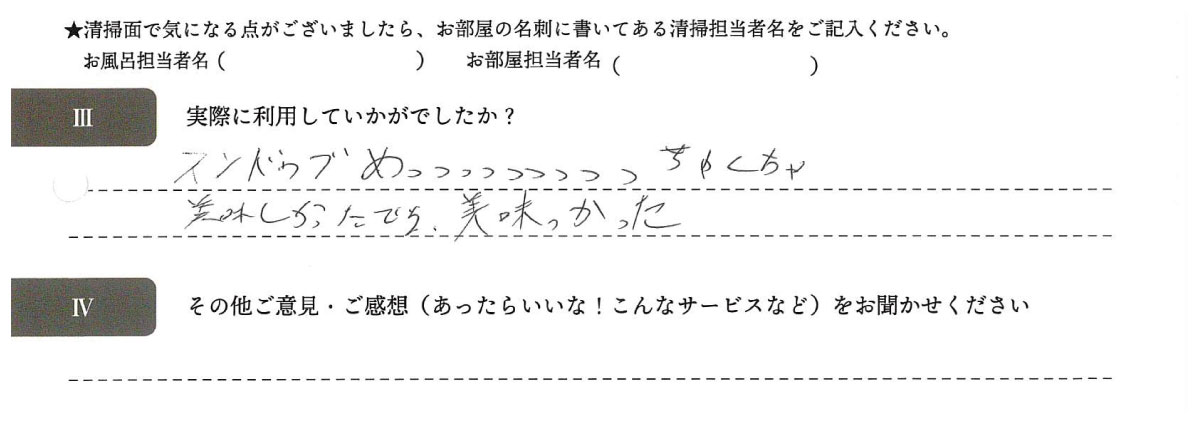 ★清掃面で気になる点がございましたら、お部屋の名刺に書いてある清掃担当者名をご記入ください。
お風呂担当者名（　　　　　　　　　）　お部屋担当者名（　　　　　　　　　）
Ⅲ　実際に利用していかがでしたか？
スンドゥブめっっっっっっっっっちゃくちゃ
美味しかったです、美味っかった
Ⅳ　その他ご意見・ご感想（あったらいいな！こんなサービスなど）をお聞かせください